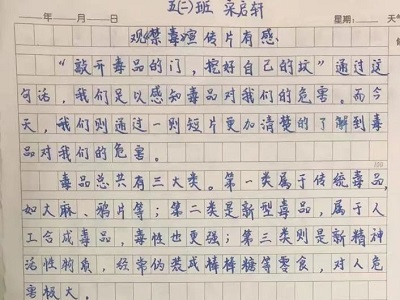 五(二)班 宋启轩
年 月 日 星期： 天气
观《禁毒》宣传片有感：
“敲开毒品的门，挖好自己的坟”通过这
句话，我们足以感知毒品对我们的危害。而今
天，我们则通过一则短片更加清楚的了解到毒
品对我们的危害。
毒品总共有三大类。第一类属于传统毒品，
如大麻、鸦片等；第二类是新型毒品，属于人
工合成毒品，毒性也更强；第三类则是新精神
活性物质，经常伪装成棒棒糖等零食，对人危
害极大。